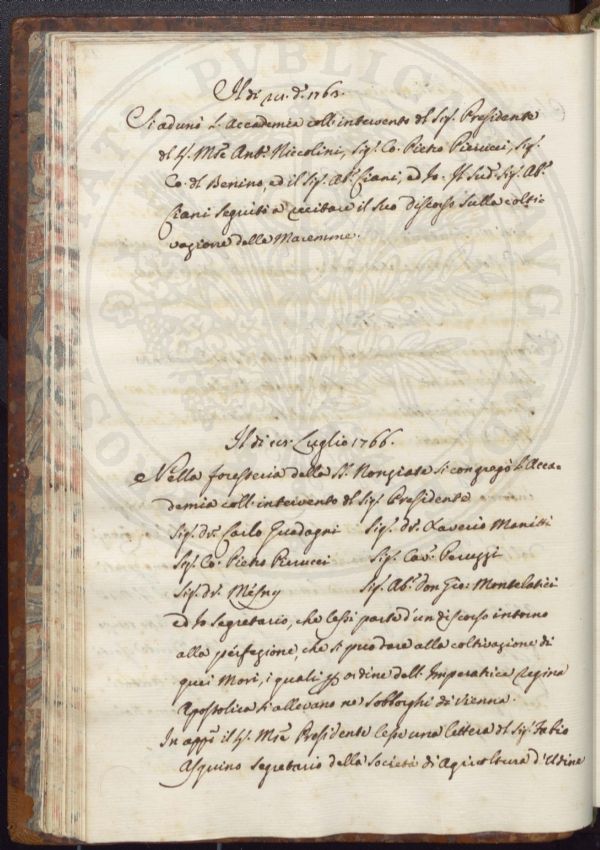 Il dì xxi. d.º 1765.
Si adunò l'Accademia coll'intervento del Sig.r Presidente
del S.r M.se Ant.º Niccolini, Sig.r Co. Pietro Pierucci, Sig.r
Co. del Benino, ed il Sig.r Ab.e Ciani, ed Io. Il Sud.º Sig.r Ab.e
Ciani seguitò a recitare il suo discorso sulla colti=
vazione delle Maremme.
Il dì Luglio 1766.
Nella foresteria della SS. Nonziata si congregò l'Acca=
demia coll'intervento del Sig.r Presidente
Sig.r d.r Carlo Guadagni Sig.r d.r Saverio Manetti
Sig.r Co. Pietro Pierucci Sig.r Cav.r Peruzzi
Sig.r d.r Mesny Sig.r Ab.e Don Gio: Montelatici
ed Io Segretario, che lessi parte d'un discorso intorno
alla perfezione, che si può dare alla coltivazione di
quei Mori, i quali per ordine dell'Imperatrice Regina
Apostolica si allevano ne' Sobborghi di Vienna.
In app.º il S.r M.se Presidente lesse una lettera del Sig.r Fabio
Asquino Segretario della Società di Agricoltura d'Udine